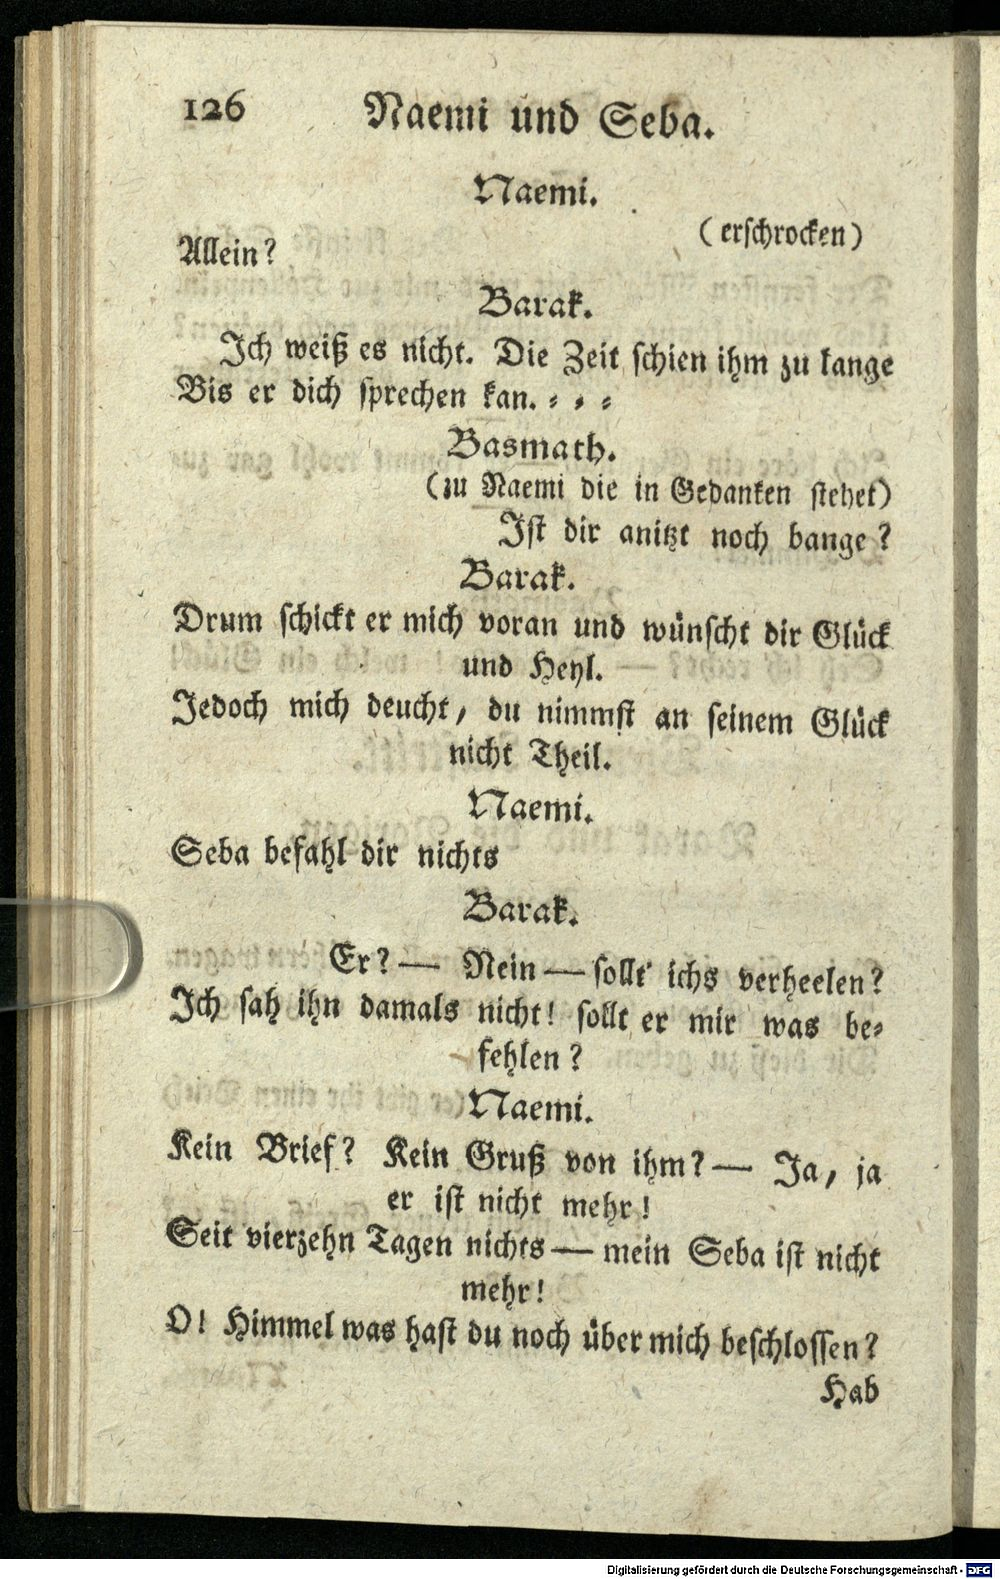 126 Naemi und Seba.
Naemi.
(erschrocken)
Allein?
Barak.
Ich weiß es nicht. Die Zeit schien ihm zu lange
Bis er dich sprechen kan. ⸗ ⸗ ⸗
Basmath.
(zu Naemi die in Gedanken stehet)
Ist dir anitzt noch bange?
Barak.
Drum schickt er mich voran und wünscht dir Glück
und Heyl.
Jedoch mich deucht, du nimmst an seinem Glück
nicht Theil.
Naemi.
Seba befahl dir nichts
Barak.
Er? — Nein — sollt ichs verheelen?
Ich sah ihn damals nicht! sollt er mir was be⸗
fehlen?
Naemi.
Kein Brief? Kein Gruß von ihm? — Ja, ja
er ist nicht mehr!
Seit vierzehn Tagen nichts — mein Seba ist nicht
mehr!
O! Himmel was hast du noch über mich beschlossen?
Hab
Digitalisierung gefördert durch die Deutsche Forschungsgemeinschaft - DFG